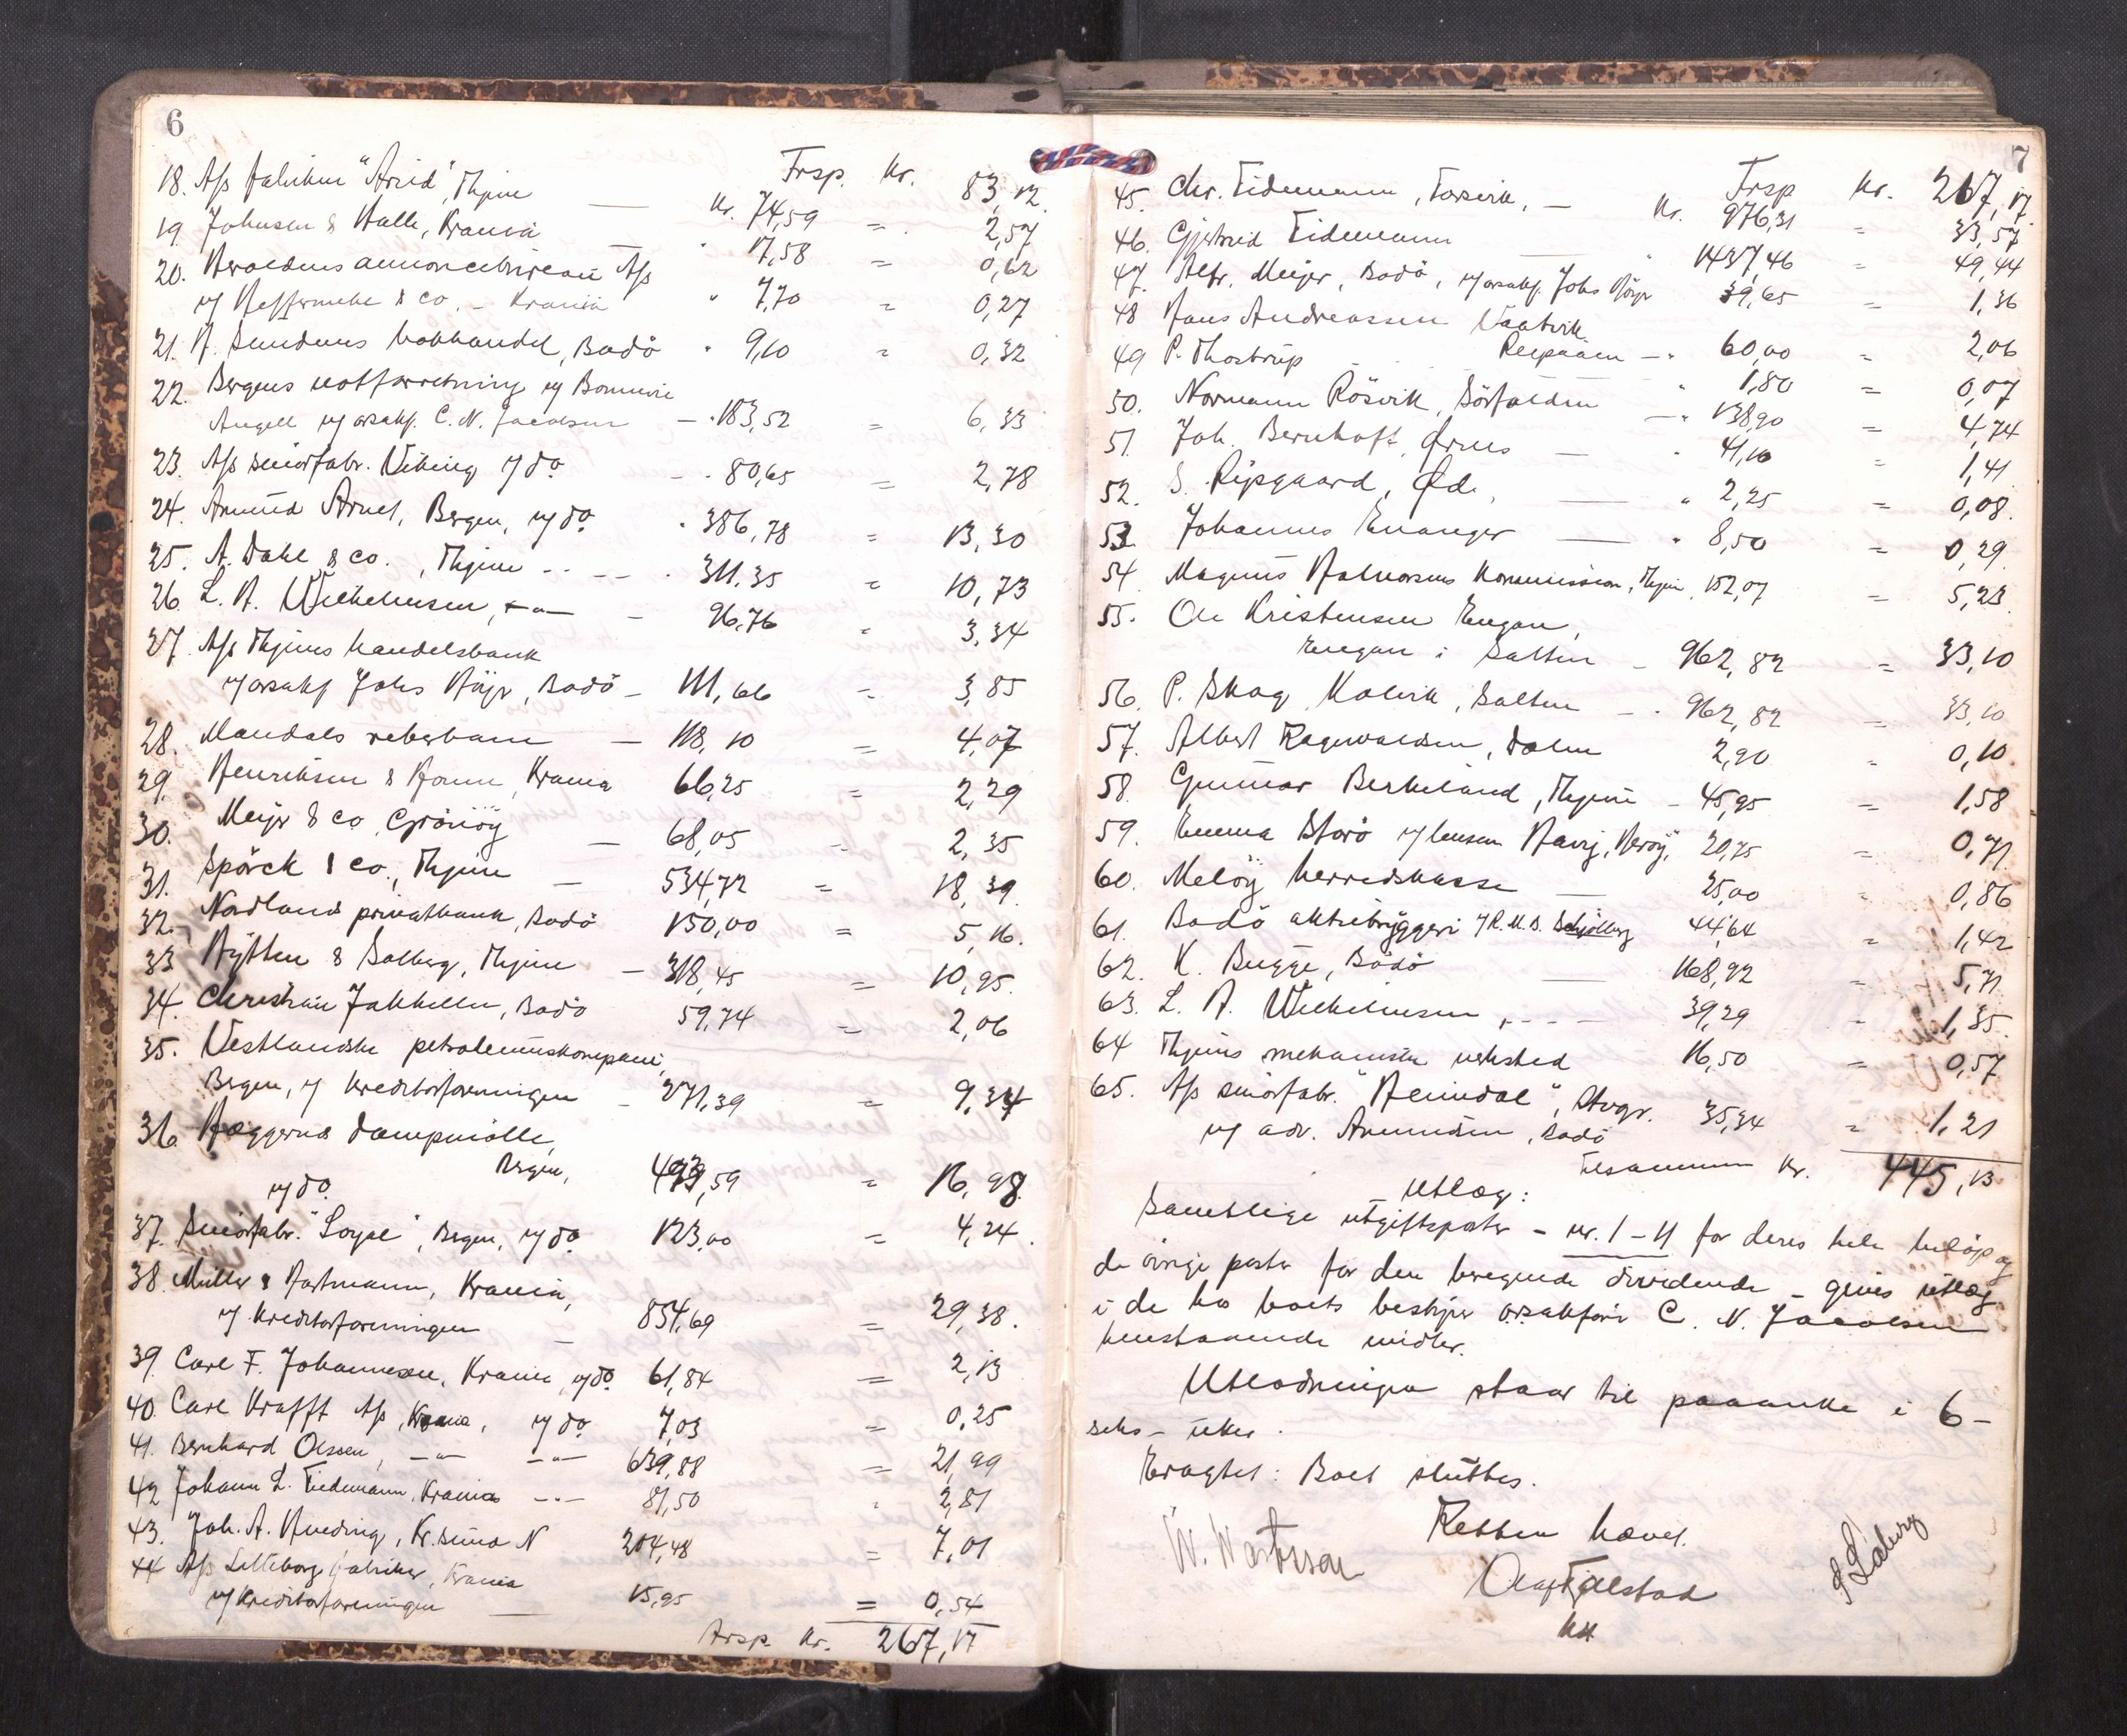 6
Trsp. Kr. 83,12.
18. A/s fabriken "Arild", Thjem — Kr. 74,59 = 2,57
19. Johnsen & Halle, Krania " 17,58 = 0,62
20. Heroldens annoncebureau A/s
v/ Heffermehl & co. - Krania " 7,70 = 0,27
21. N. Sundems bokhandel, Bodö " 9,10 = 0,32
22. Bergens notforretning v/ Bommen
Angell v/ orsakf. C. N. Jacobsen — " 183,52 = 6,33
23. A/s smörfabr. Viking v/ do. - " 80,65 = 2,78
24. Amund Arnet, Bergen, v/ do. " 386,78 = 13,30
25. A. Dahl & co., Thjem - - - - " 311,35 = 10,73
26. L. A. Wilhelmsen, - " - — 96,76 = 3,34
27. A/s Thjems handelsbank
v/ orsakf Johs Höyer, Bodö — 111,66 = 3,85
28. Mandals reberbane — 118,10 = 4,07
29. Henriksen & Horne, Krania 66,25 = 2,29
30. Meyer & co, Grönöy — 68,05 = 2,35
31. Spörck & co., Thjem — 534,72 = 18,39
32. Nordlands privatbank, Bodö 150,00 = 5,16.
33. Hytten & Solberg, Thjem — 318,45 = 10,95.
34. Christian Jakhelln, Bodö 59,74 = 2,06
35. Vestlandske petroleumskompani,
Bergen, v/ Kreditorforeningen — 271,39 = 9,34
36. Hæggernes dampmölle,
Bergen,
v/ do. 493,59 = 16,98
37. Smörfabr. "Loyal", Bergen, v/ do. 123,00 = 4,24.
38. Müller & Hartmann, Krania,
v/ Kreditorforeningen — 854,69 = 29,38.
39. Carl F. Johannesen, Krania, v/ do. 61,84 = 2,13
40. Carl Krafft A/s, Krania, v/ do. 7,03 = 0,25
41. Bernhard Olssen, - " - - " - 639,88 = 21,99
42. Johann L. Tiedemann, Krania - " - 81,50 " 2,81
43. Joh. A. Hveding, Kr.sund N 204,48 = 7,01
44. A/s Lilleborg fabriker, Krania
v/ Kreditorforeningen — 15,95 = 0,54
Trsp. Kr. 267,17
7
Trsp Kr. 267,17.
45. Chr. Tidemann, Torsvik, — Kr. 976,31 = 33,57
46. Gjertrud Tidemann — " 1437,46 = 49,44
47. Alfr. Meyer, Bodö, v/ orsakf. Johs Höyer 39,65 = 1,36
48. Hans Andreassen Vaatvik
Reipaaen — " 60,00 = 2,06
49. P. Thostrup - " 1,80 = 0,07
50. Normann Rösvik, Sörfolden — " 138,90 = 4,74
51. Joh. Bernhoft, Ørnes — " 41,10 = 1,41
52. S. Ripgaard, Ø do, — " 2,25 = 0,08.
53. Johannes Enanger — " 8,50 = 0,29.
54. Magnus Halvorsens Kommission, Thjem, 152,07 = 5,23.
55. Ole Kristensen Engan,
Engan i Salten — 962,82 = 33,10
56. P. Skog, Kalvik, Salten — " 962,82 = 33,10
57. Albert Ragnvaldsen, Dalen 2,90 " 0,10.
58. Gunnar Berkeland, Thjem — 45,95 = 1,58
59. Emma Storö v/ lensm Havig, Heröy, 20,75 = 0,71
60. Melöy herredskasse — 25,00 " 0,86
61. Bodö aktiebryggeri v/ R. M. B. Schjölberg 44,64 = 1,42
62. K. Bugge, Bodö — 168,92 " 5,71
63. L. A. Wilhelmsen, - - - - 39,29 " 1,35.
64. Thjems mekaniske verksted 16,50 = 0,57
65. A/s smörfabr. "Heimdal", Stvgr.
v/ adv. Amundsen, Bodö 35,34 = 1,21
Tilsammen Kr. 445,13
Utlæg:
Samtlige utgiftsposter - nr. 1 - 11 for deres hele belöp og
de övrige poster for den beregnede dividende - gives utlæg
i de hos boets bestyrer orsakförer C. N. Jacobsen
henstaaende midler.
Utlodningen staar til paaanke i 6 -
seks - uker.
Eragtet: Boet sluttes.
Retten hævet.
W. Wartssen
Olaf Fjelstad
kst
S Löberg